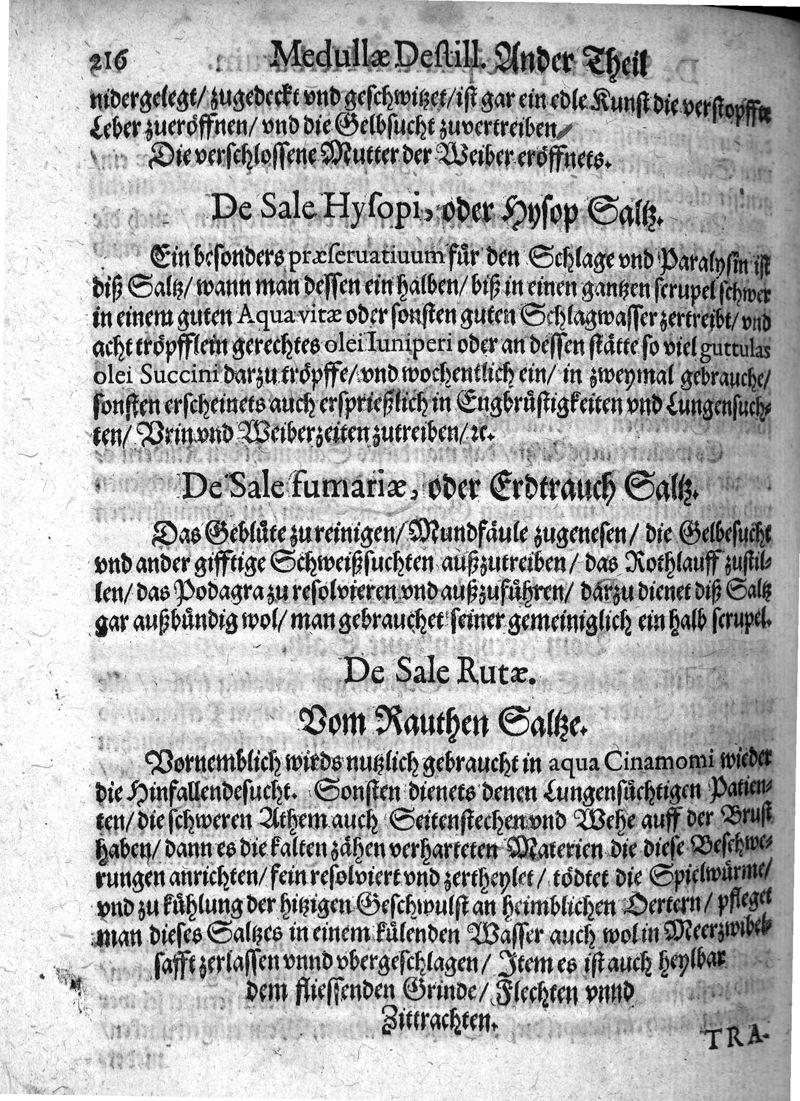 216 Medullæ Destill. Ander Theil
nidergelegt/ zugedeckt vnd geschwitzet/ ist gar ein edle Kunst die verstopffte
Leber zueröffnen/ vnd die Gelbsucht zuvertreiben/
Die verschlossene Mutter der Weiber eröffnets.
De Sale Hysopi, oder Hysop Saltz.
Ein besonders præservatiuum für den Schlage vnd Paralysin ist
diß Saltz/ wann man dessen ein halben/ biß in einen gantzen scrupel schwer
in einem guten Aqua vitæ oder sonsten guten Schlagwasser zertreibt/ vnd
acht tröpfflein gerechtes olei Iuniperi oder an dessen stätte so viel guttulas
olei Succini darzu tröpffe/ vnd wochentlich ein/ in zweymal gebrauche/
sonsten erscheinets auch ersprießlich in Engbrüstigkeiten vnd Lungensuch-
ten/ Vrin vnd Weiberzeiten zutreiben/ ꝛc.
De Sale fumariæ, oder Erdtrauch Saltz.
Das Geblüte zu reinigen/ Mundfäule zugenesen/ die Gelbesucht
vnd ander gifftige Schweißsuchten außzutreiben/ das Rothlauff zustil-
len/ das Podagra zu resolvieren vnd außzuführen/ darzu dienet diß Saltz
gar außbündig wol/ man gebrauchet seiner gemeiniglich ein halb scrupel.
De Sale Rutæ.
Vom Rauthen Saltze.
Vornemblich wirds nutzlich gebraucht in aqua Cinamomi wieder
die Hinfallendesucht. Sonsten dienets denen Lungensüchtigen Patien-
ten/ die schweren Athem auch Seitenstechen vnd Wehe auff der Brust
haben/ dann es die kalten zähen verharteten Materien die diese Beschwe-
rungen anrichten/ fein resolviert vnd zertheylet/ tödtet die Spielwürme/
vnd zu kühlung der hitzigen Geschwulst an heimblichen Oertern/ pfleget
man dieses Saltzes in einem külenden Wasser auch wol in Meerzwibel-
safft zerlassen vnnd vbergeschlagen/ Item es ist auch heylbar
dem fliessenden Grinde/ Flechten vnnd
Zittrachten.
TRA-